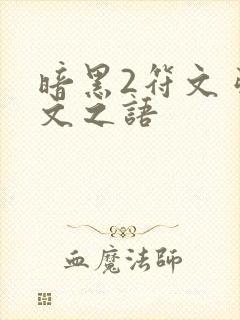 暗黑2符文
文之語
血魔法師